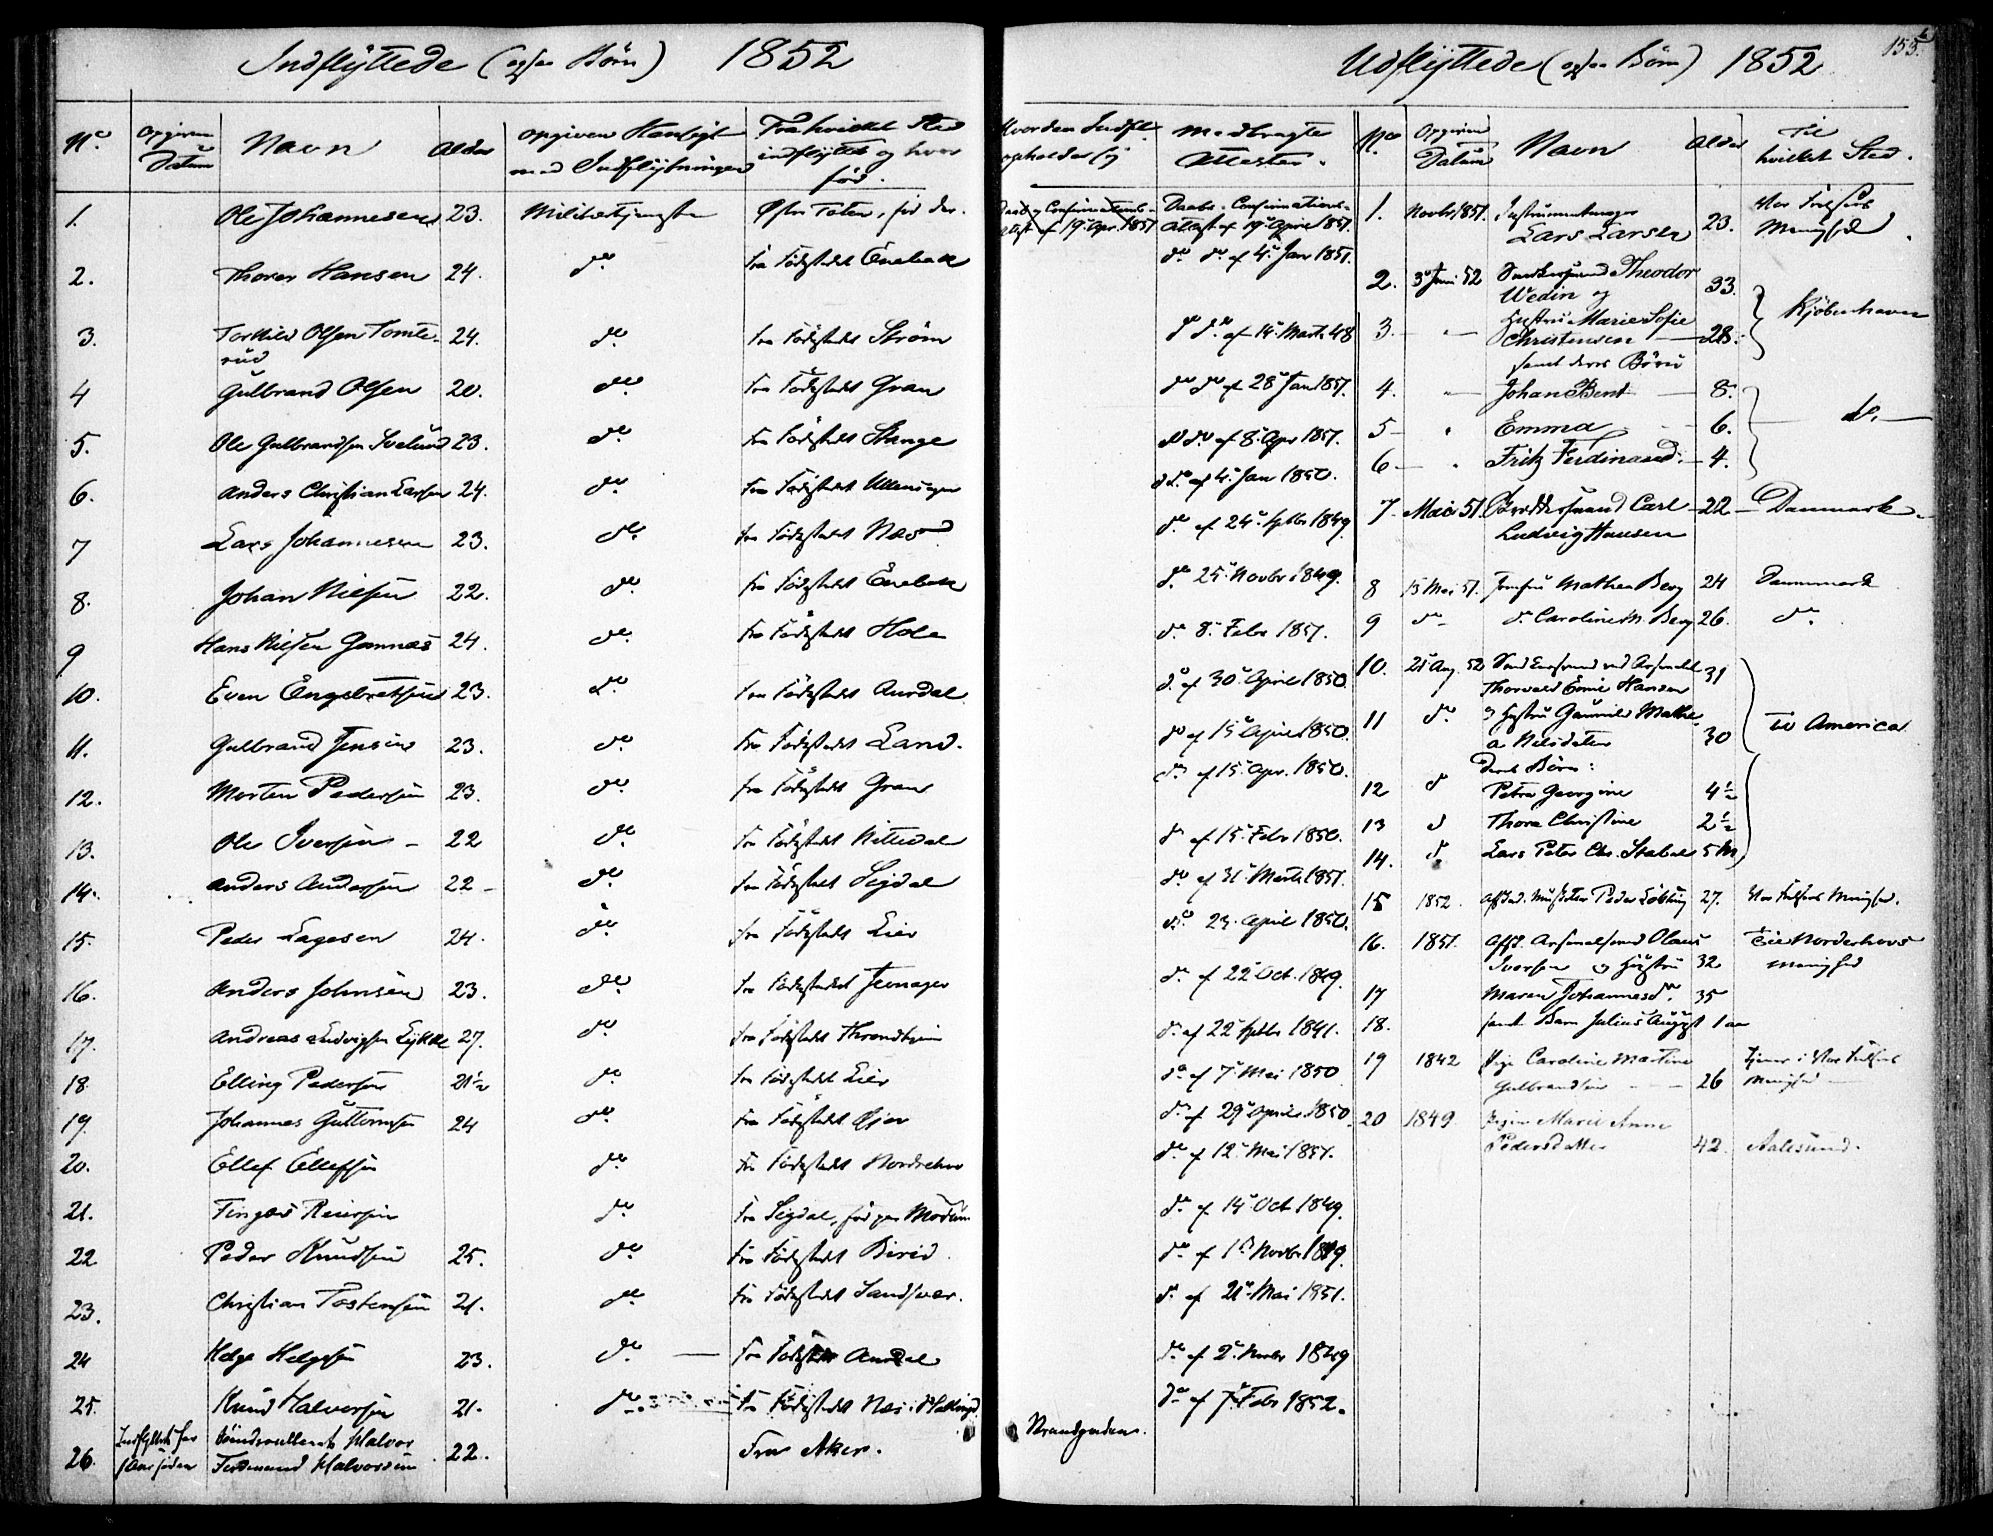 Indflyttede (ogsaa Børn) 1852
No. Opgiven Datum Navn Alder Opgiven Hensigt med Indflytningen Fra hvilket Sted indflyttet og hvor fød.
1. Ole Johannesen 23. Militairtjeneste Østre Toten, fød der.
2. Thorer Hansen 24. do. fra Fødestedet Enebak
3. Torkild Olsen Tomterud 24. do. fra Fødestedet Strøm
4 Gulbrand Olsen 20. do. fra Fødestedet Gran
5. Ole Gulbrandsen 23. do. fra Fødestedet Stange
6. Anders Christian Larsen 24. do. fra Fødestedet Ullensager
7 Lars Johannesen 23. do. fra Fødestedet Næs
8. Johan Nielsen 22. do. fra Fødestedet Enebak
9 Hans Nielsen Gomnæs 24. do. fra Fødestedet Hole
10. Even Engebretsen 23. do. fra Fødestedet Aurdal
11. Gulbrand Jensen 23. do. fra Fødestedet Land.
12. Morten Pedersen 23. do. fra Fødestedet Gran
13. Ole Iversen - 22 do. fra Fødestedet Nittedal
14. Anders Andersen 22 - do. fra Fødestedet Sigdal
15. Peder Lagesen 24. do. fra Fødestedet Lier
16. Anders Johnsen 23. do. fra Fødestedet Jevnager
17. Andreas Ludvigsen Lykke 27. do. fra Fødestedet Throndhjem
18. Elling Pedersen 21½ do. fra Fødestedet Lier
19. Johannes Guttormsen 24 do. fra Fødestedet Øier
20. Ellef Ellefsen do. fra Fødestedet Norderhov
21. Reiersen do. fra Sigdal, fød paa Modum
22 Peder Knudsen 25. do. fra Fødestedet Birid.
23. Christian Tostensen 21. do. fra Fødestedet Sandsvær.
24 Helge Helgesen 23. do. fra Fødestedet Aurdal
25. Knud Halvorsen 21. do. fra Fødestedet Næs i Hallingd.
26. Halvor Ferdinand Halvorsen 22. Fra Aker.
Hvor den Indfl. opholder sig Medbragte Attester.
Daab og Confirmations-attest af 19 Apr. 1851 Daabs- Confirmations-attest af 19 April 1851.
do. do. af 4 Jan 1851.
do. do. af 14 Marts 48
do. do. af 28 Jan 1851.
do. do. af 8 Apr 1851.
do. af 4 Jan 1850.
do. af 24 Septbr 1849.
do. 25 Novbr 1849.
do. 8 Febr 1851.
do. af 30 April 1850.
do. af 15 April 1850.
do. af 15 Apr. 1850.
do. af 15 Febr 1850.
do. af 31 Marts 1851.
do. 23. April 1850.
do. af 22 Oct. 1849.
do. af 22 Septbr 1841.
do. af 7 Mai 1850
do. af 29 April 1850.
do. af 12 Mai 1851.
do. af 14 Oct 1849.
do. af 1 Novbr 1849.
do. af 21 Mai 1851.
do. af 2 Novbr 1849
do. af 7 Febr 1852.
Strandgaden.
Udflyttede (ogsaa Børn) 1852
153.
No. Opgiven Datum Navn Alder Til hvilket Sted.
1. Novbr 1851. Instrumentmager Lars Larsen 23. Vor Frelsers Menighed.
2. 3 Juni 52 Theodor Wedin og 33.
Kjøbenhavn
3. Hustru Marie Sofie Christensen 28.
samt deres Børn
4. Johan Bent 8.
do.
5 Emma 6.
6 Fritz Ferdinand 4.
7 Mai 51. Carl Ludvig Hansen 22 Danmark
8 15 Mai 51. Jomfru Mathea Berg 24 Dannmark
9 do. do. Caroline M. Berg 26. do.
10. 21 Aug. 52 Thorvald Hansen 31
11 do. og Hustru Gunnild Mathea Nilsdatter 30
til America
deres Børn:
12 do Petra Georgine 4½
13 do Thora Christine 2½
14. do. Lars Peter Chr. Stabel 5 M
15 1852. Afsked. Musketer Peder 27. Vor Frelsers Menighed.
16. 1851. Afsk. Arsenalsmand Olaus Iversen og Hustru 32 til Norderhovs Menighed
17 Maren Johannesdr. 35
18. samt Barn Julius August 1 aar
19 1842 Pige Caroline Martine Gulbrandsen 26 tjener i Vor Frelsers Menighed
20 1849. Pigen Marie Anne Pedersdatter 42. Aalesund.